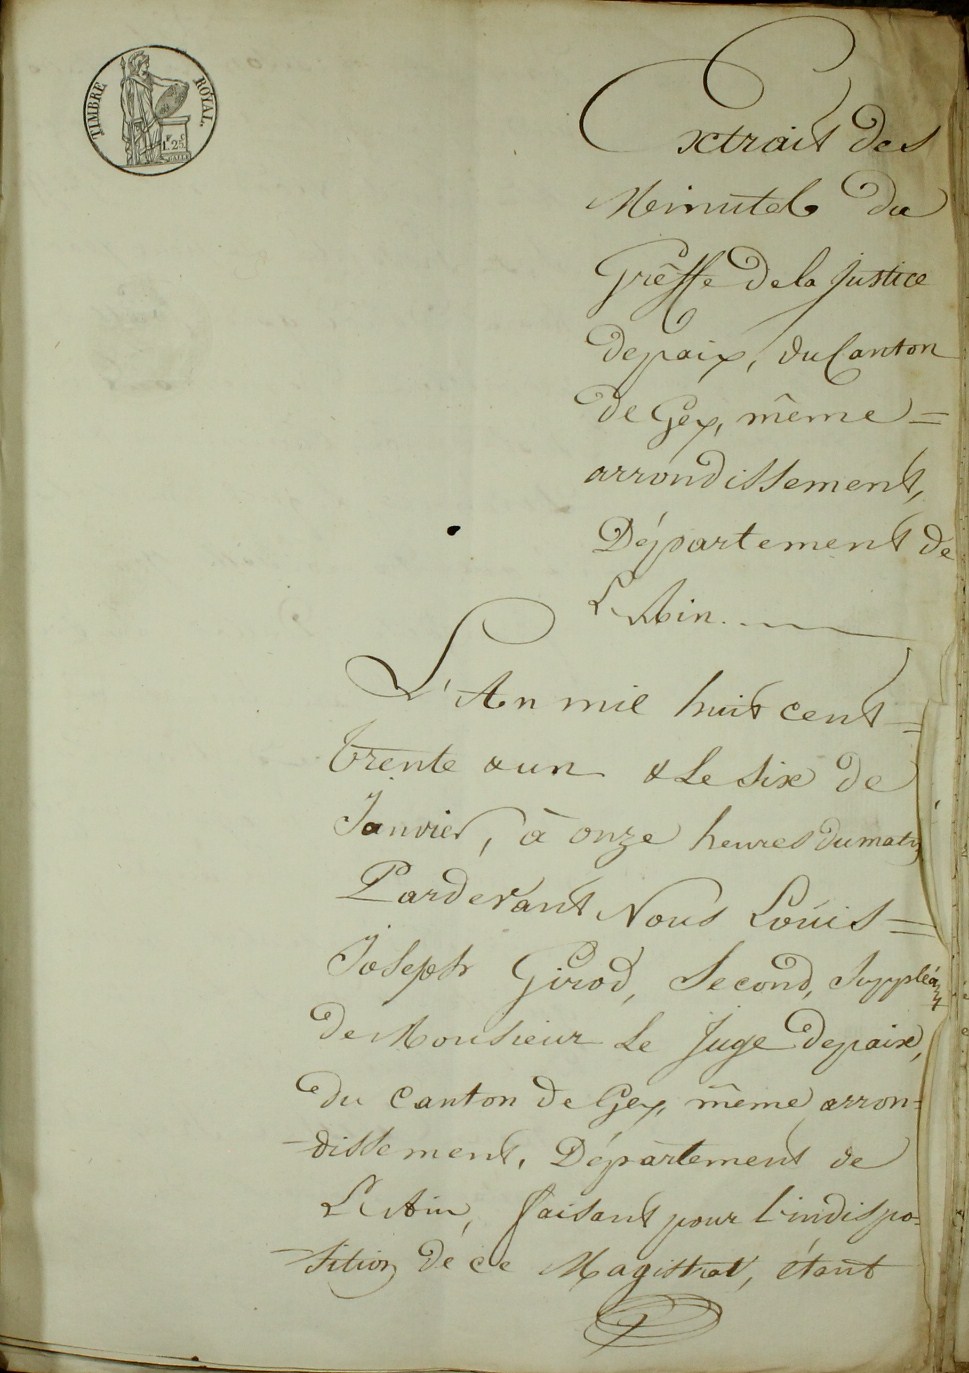 TIMBRE ROYAL.
1F. 25C
Extrait des
Meinutes du
Grêffe de la Justice
de paix, du Canton
de Gex, même =
arrondissement,
Département de
L'Ain.
L'An mil huit cent =
trente & un & Le Six de
Janvier, à onze heures du matin
Pardevant Nous Loüis =
Joseph Girod, Second, Suppléant
de Monsieur Le Juge de paix,
du Canton de Gex, même arron=
-dissement, Département de
L'Ain, faisant pour l'indispo=
-sition de ce Magistrat, étant